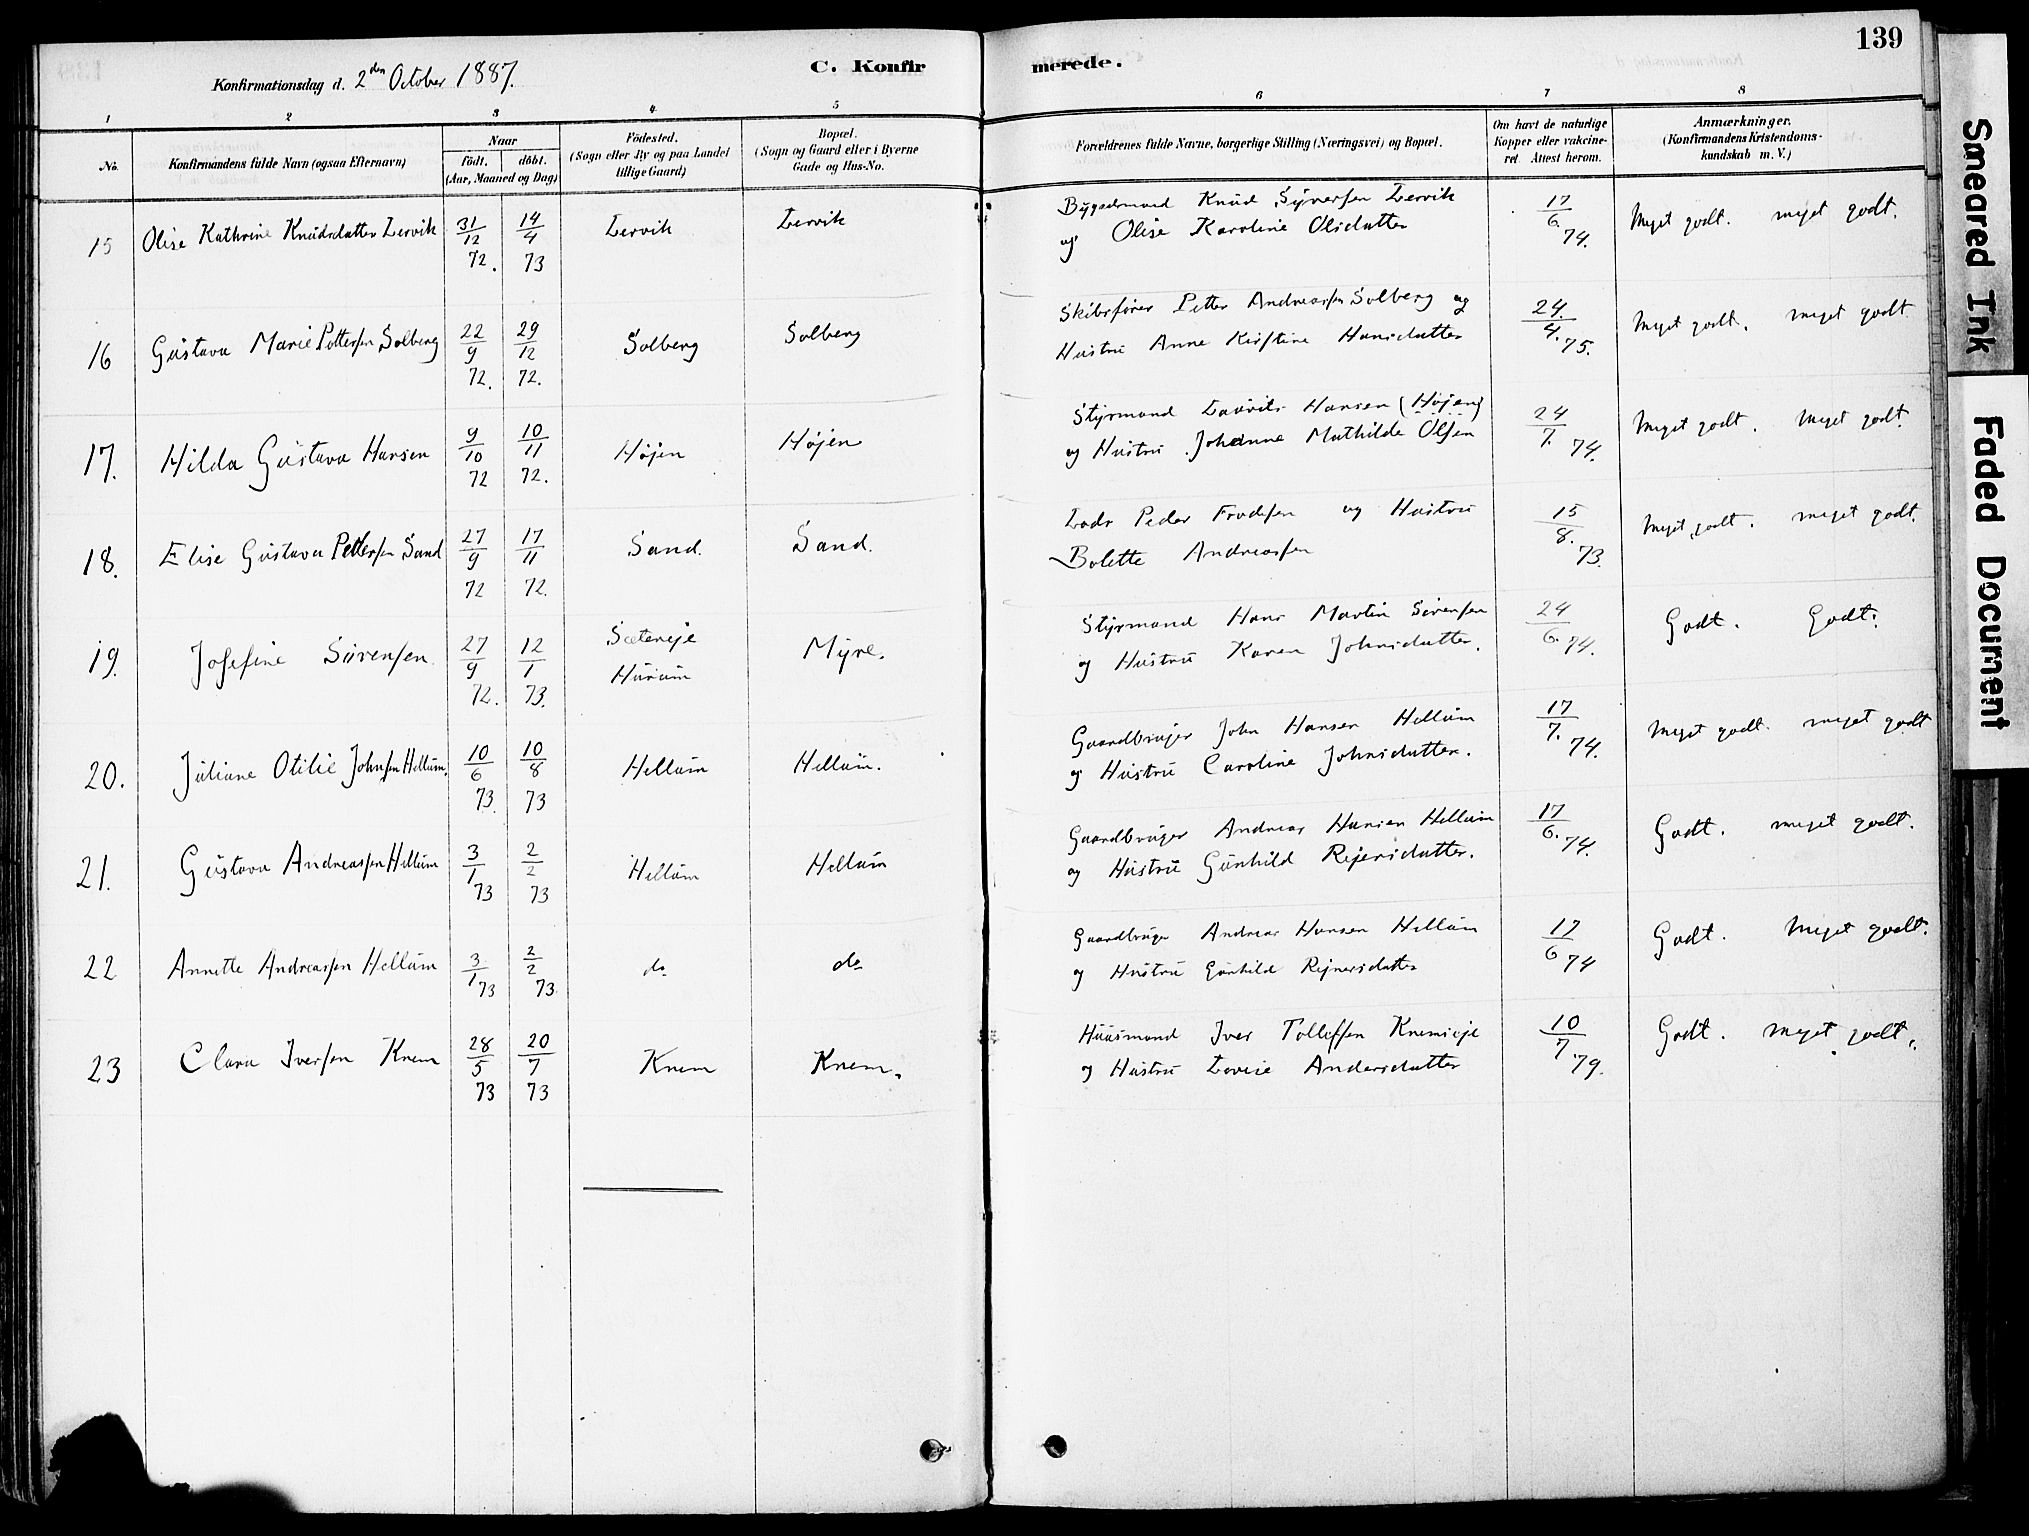 139
Konfirmationsdag d. 2den October 1887.
C. Konfirmerede.
1 2 3 4 5 6 7 8
No.
Konfirmandens fulde Navn (ogsaa Efternavn)
Naar
födt. döbt.
(Aar, Maaned og Dag)
Födested.
(Sogn eller By og paa Landet
tillige Gaard)
Bopæl.
(Sogn og Gaard eller i Byerne
Gade og Hus-No.
Forældrenes fulde Navne, borgerlige Stilling (Næringsvei) og Bopæl.
Om havt de naturlige
Kopper eller vakcine-
ret. Attest herom.
Anmærkninger.
(Konfirmandens Kristendoms-
kundskab m.V.)
15 Olise Kathrine Knudsdatter Lervik 31/12 72. 14/4 73 Lervik Lervik
Knud Synersen Lervik
og Olise Karoline Olsdatter
17/6. 74. Meget godt. meget godt.
16 Gustava Marie Pettersen Solberg 22/9 72. 29/12 72. Solberg Solberg
Skibsfører Petter Andreassen Solberg og
Hustru Anne Kirstine Hansdatter
24/4. 75. Meget godt. meget godt
17. Hilda Gustava Hansen 9/10 72 10/11 72. Højen Højen
Styrmand Laurits Hansen (Højen)
og Hustru Johanne Mathilde Olsen
24/7. 74. Meget godt. Meget godt.
18. Elise Gustava Pettersen Sand 27/9 72 17/11 72. Sand. Sand.
Lods Peder Frodesen og Hustru
Bolette Andreassen
15/8. 73. Meget godt. meget godt.
19. Josefine Sörensen 27/9 72. 12/1 73. Sætereje
Hurum Myre.
Styrmand Hans Martin Sörensen
og Hustru Karen Johnsdatter.
24/6. 74. Godt. Godt.
20. Juliane Otilie Johnsen Hellum. 10/6 73. 10/8 73 Hellum Hellum.
Gaardbruger John Hansen Hellum
og Hustru Caroline Johnsdatter.
17/7. 74. Meget godt. meget godt
21. Gustava Andreassen Hellum 3/1 73 2/2 73 Hellum Hellum
Gaardbruger Andreas Hansen Hellum
og Hustru Gunhild Rejersdatter.
17/6. 74. Godt. meget godt.
22 Annette Andreassen Hellum 3/1 73 2/2 73. do do
Gaardbruger Andreas Hansen Hellum
og Hustru Gunhild Rejnersdatter
17/6 74 Godt. Meget godt.
23 Clara Iversen Knem 28/5 73 20/7 73 Knem Knem.
Huusmand Iver Tollefsen Knemseje
og Hustru Lovise Andersdatter
10/7 79. Godt. meget godt.
Smeared Ink
Faded Document